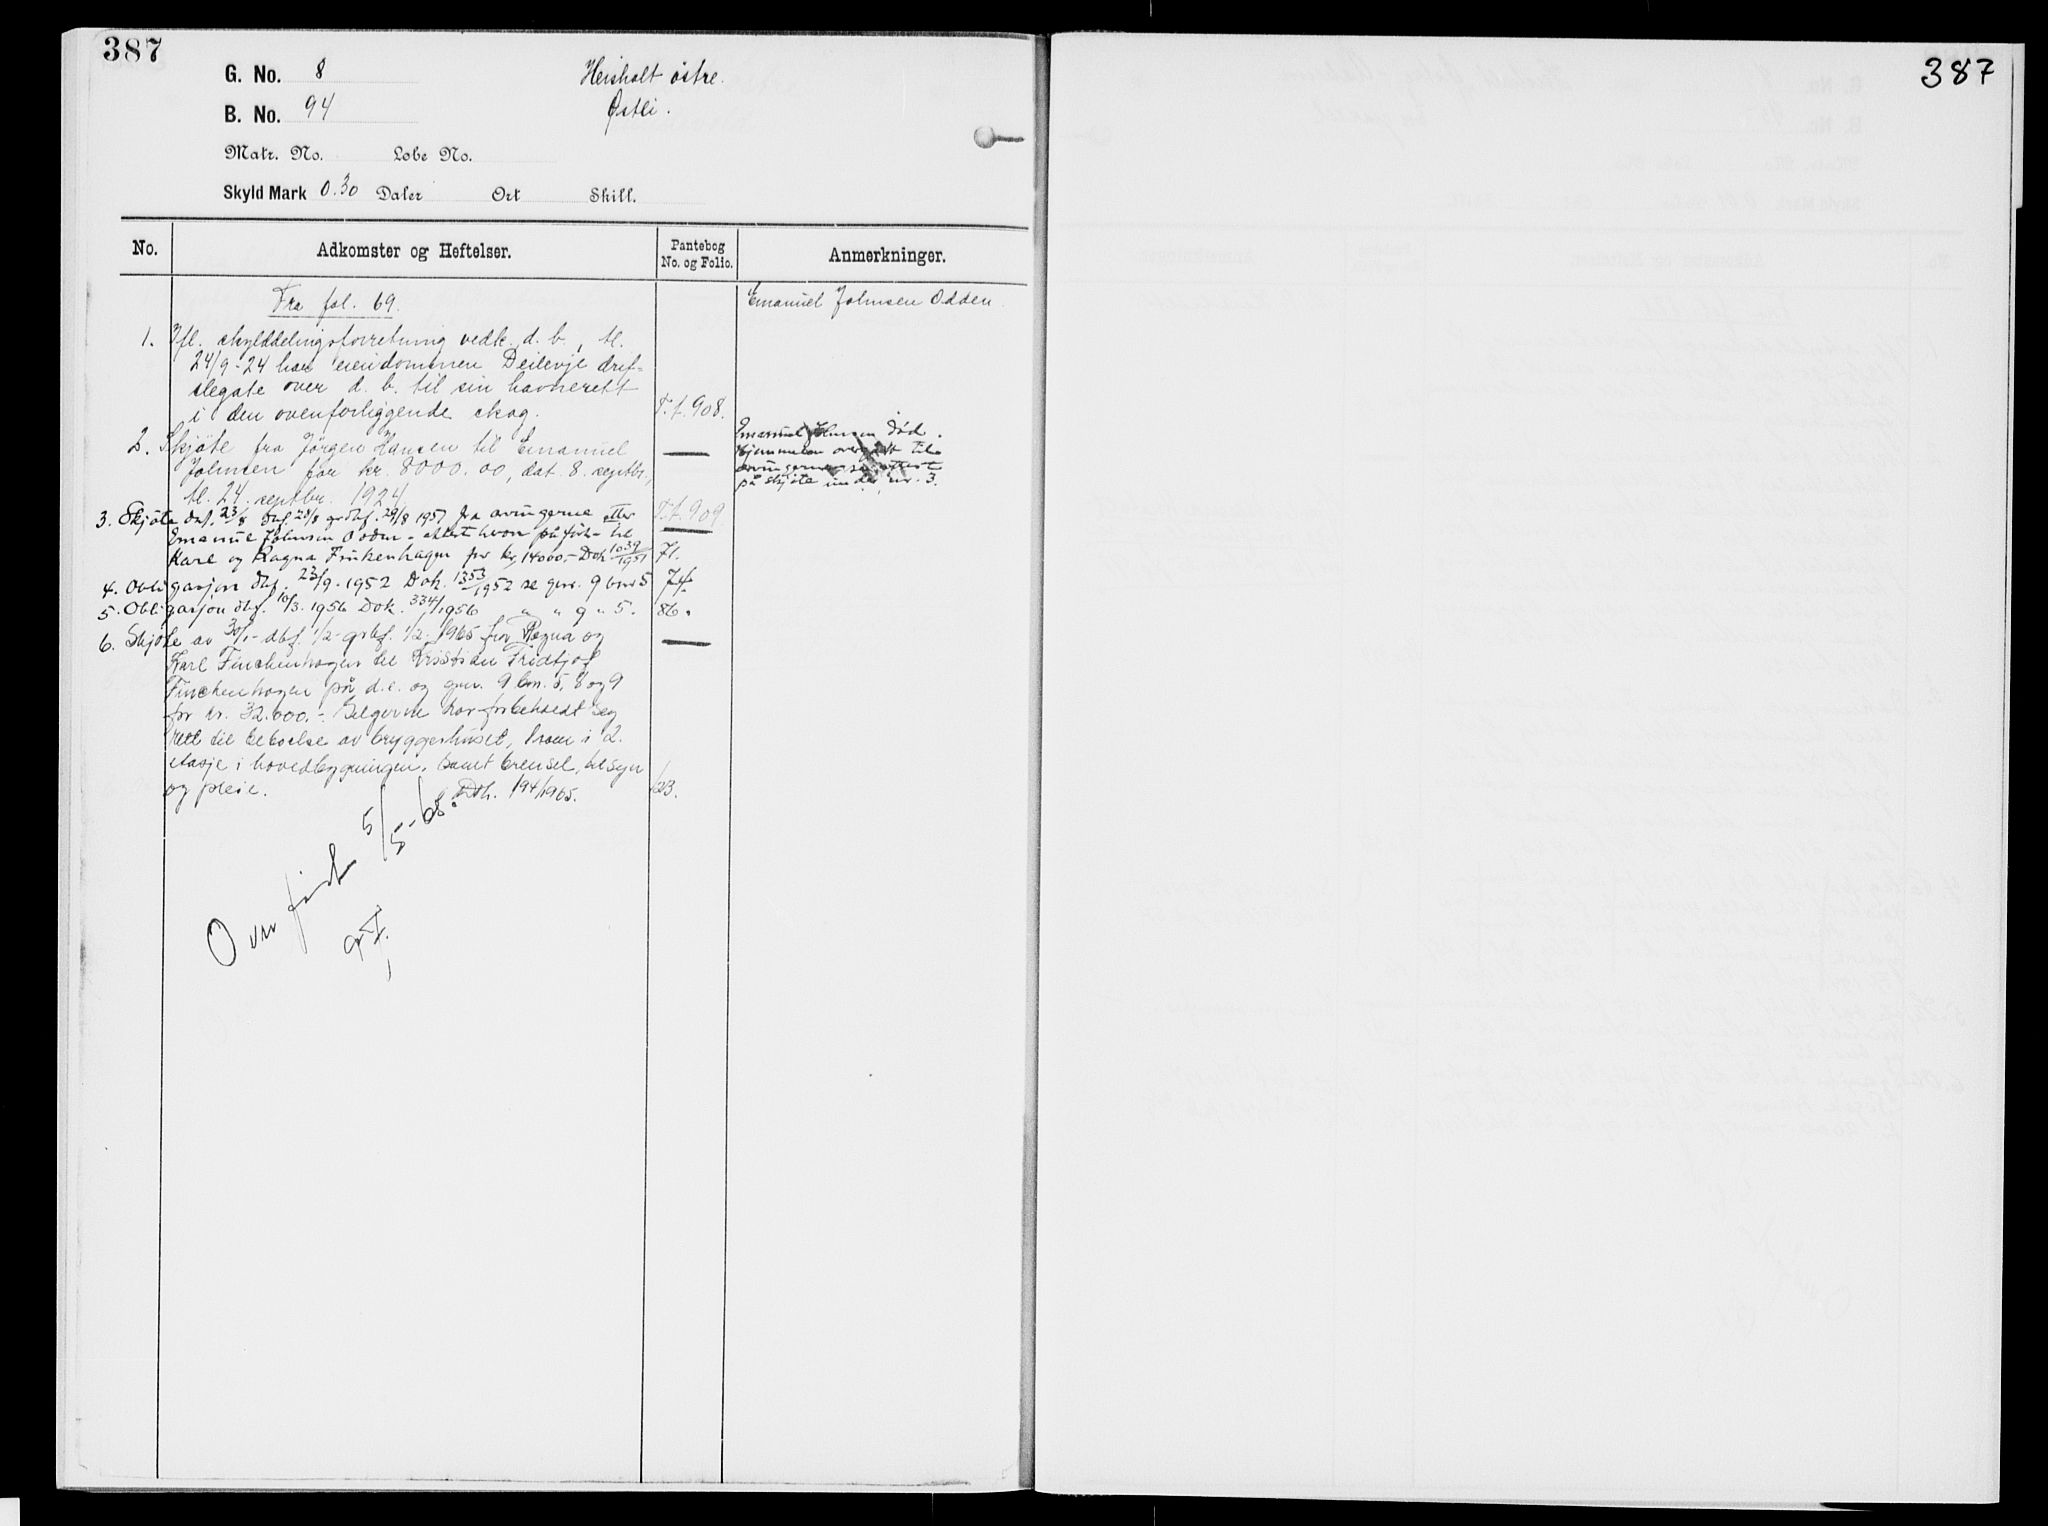 387
G. No. 8 Heisholt østre.
B. No. 94 Østli.
Matr. No. Løbe No.
Skyld Mark 0.30 Daler Ort Skill.
No. Adkomster og Heftelser. Pantebog No. og Folio. Anmerkninger.
Fra fol. 69. Emanuel Johnsen Odden.
1. Ifl. skylddelingsforretning vedk. d. b., tl.
24/9-24 har eiendommen Deilevje drif-
slegate over d. b. til sin havnerett
i den ovenforliggende skog. T.t. 908.
2. Skjøte fra Jørgen Hansen til Emanuel
Johnsen for kr. 8000.00, dat. 8. septbr.,
tl. 24. septbr. 1924 T.t. 909
Emanuel Johnsen død.
Hjemmelen overgått til
arvingerne, se attest
på skjøte under nr. 3.
3. Skjøte dat. 23/8 dbf. 28/8 grbf. 29/8 1951 fra arvingerne etter
Emanuel Johnsen Odden - attest herom påført - til
Karl og Ragna Finkenhagen for kr. 14000.- Dok 1039/1951 71.
4. Obligasjon dbf. 23/9-1952 Dok. 1353/1952 se gnr. 9 bnr 5 74.
5. Obligasjon dbf. 16/3. 1956 Dok. 334/1956 " " 9 " 5. 86.
6. Skjøte av 30/1- dbf. 1/2- grbf. 1/2-1965 fra Ragna og
Karl Finckenhagen til Kristian Fridtjof
Finckenhagen på d.e. og gnr. 9 bnr. 5, 8 og 9
for kr. 32.000.-. Selgerne har forbeholdt seg
rett til beboelse av bryggerhuset, 1 rom i 2.
etasje i hovedbygningen, samt brensel, tilsyn
og pleie. Dok. 194/1965. 123.
Overført 5/5-68.
387